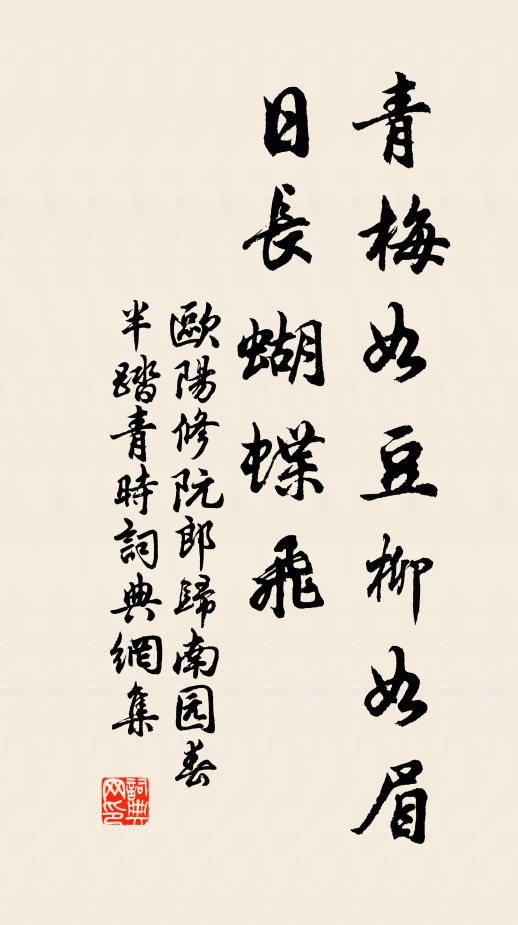 青梅如豆柳如眉
日長蝴蝶飛
歐陽修阮郎歸南园春
半踏青時詞典網集
詞典
网印